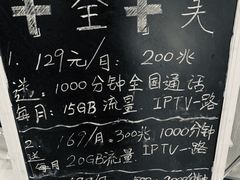 十全十美
1. 129元/月: 200兆
送: 1000分钟全国通话
每月: 15GB流量. IPTV一路
2. 169/月. 300兆. 1000分钟
送 每月 20GB流量. IPTV一路